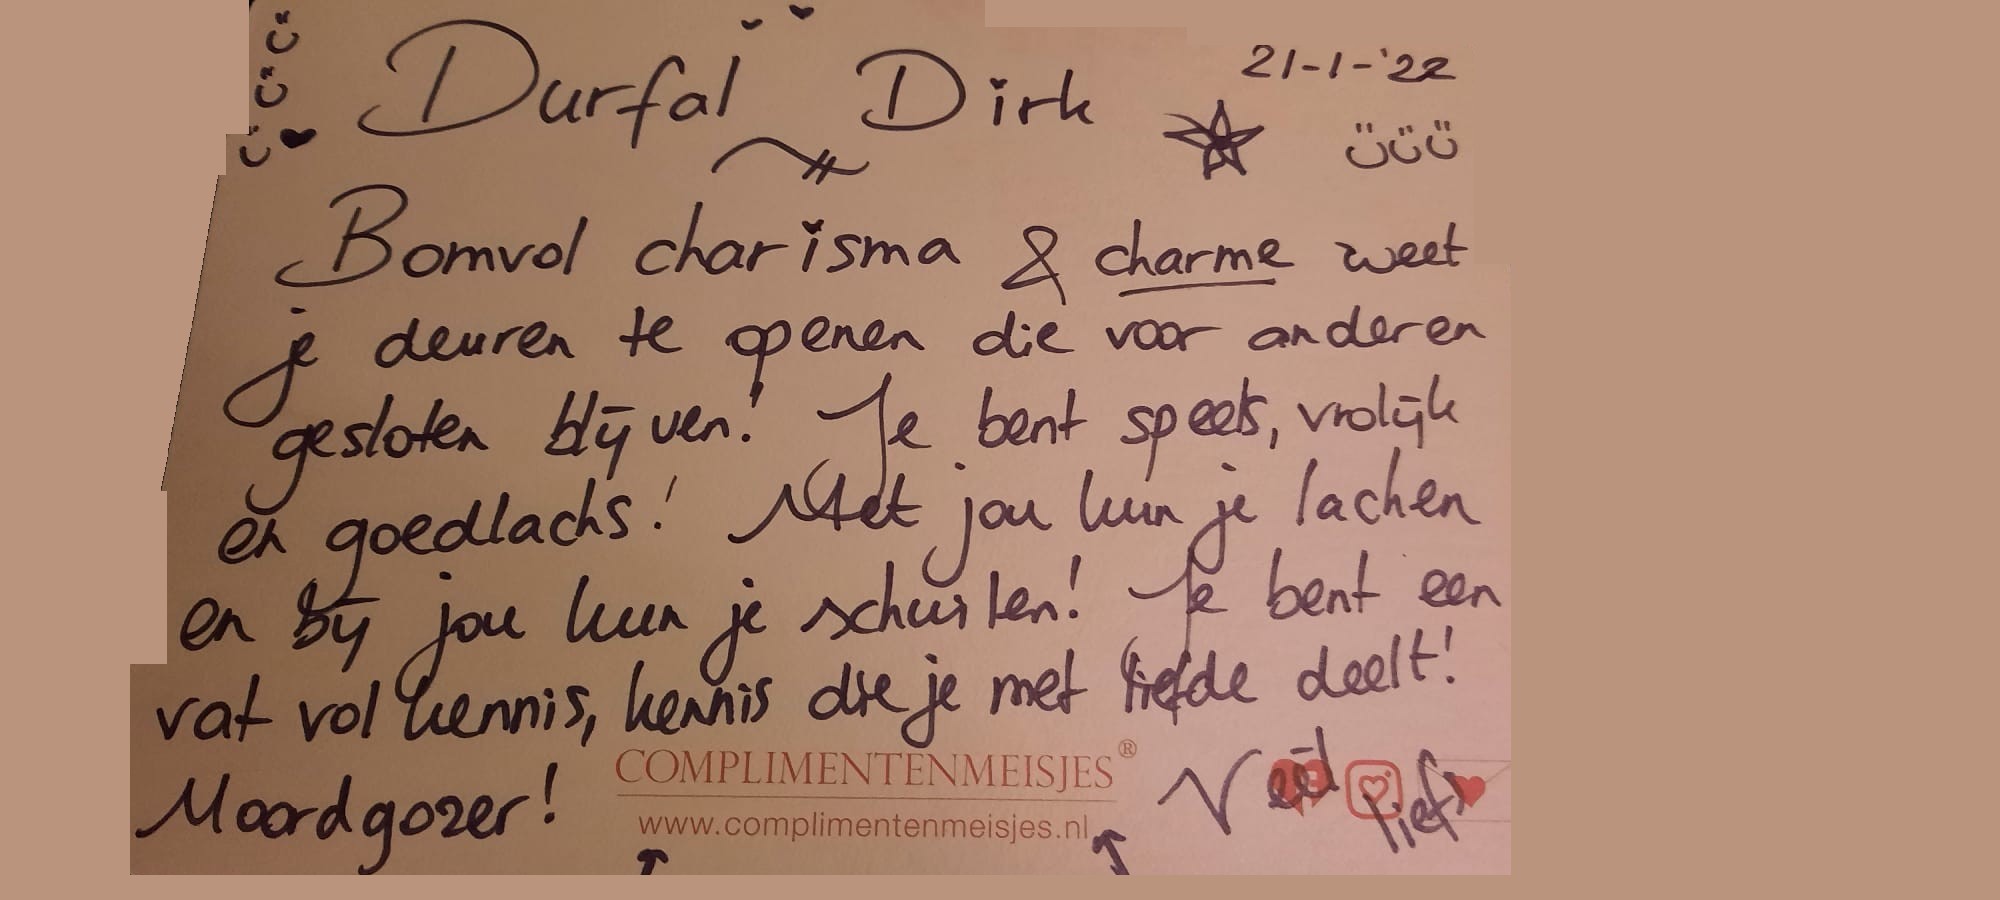 Durfal Dirk
21-1-'22
Bomvol charisma & charme weet
je deuren te openen die voor anderen
gesloten blijven! Je bent speels, vrolijk
en goedlachs! Met jou kun je lachen
en bij jou kun je schuilen! Je bent een
vat vol kennis, kennis die je met liefde deelt!
Moordgozer!
COMPLIMENTENMEISJES®
www.complimentenmeisjes.nl
Veel
liefs